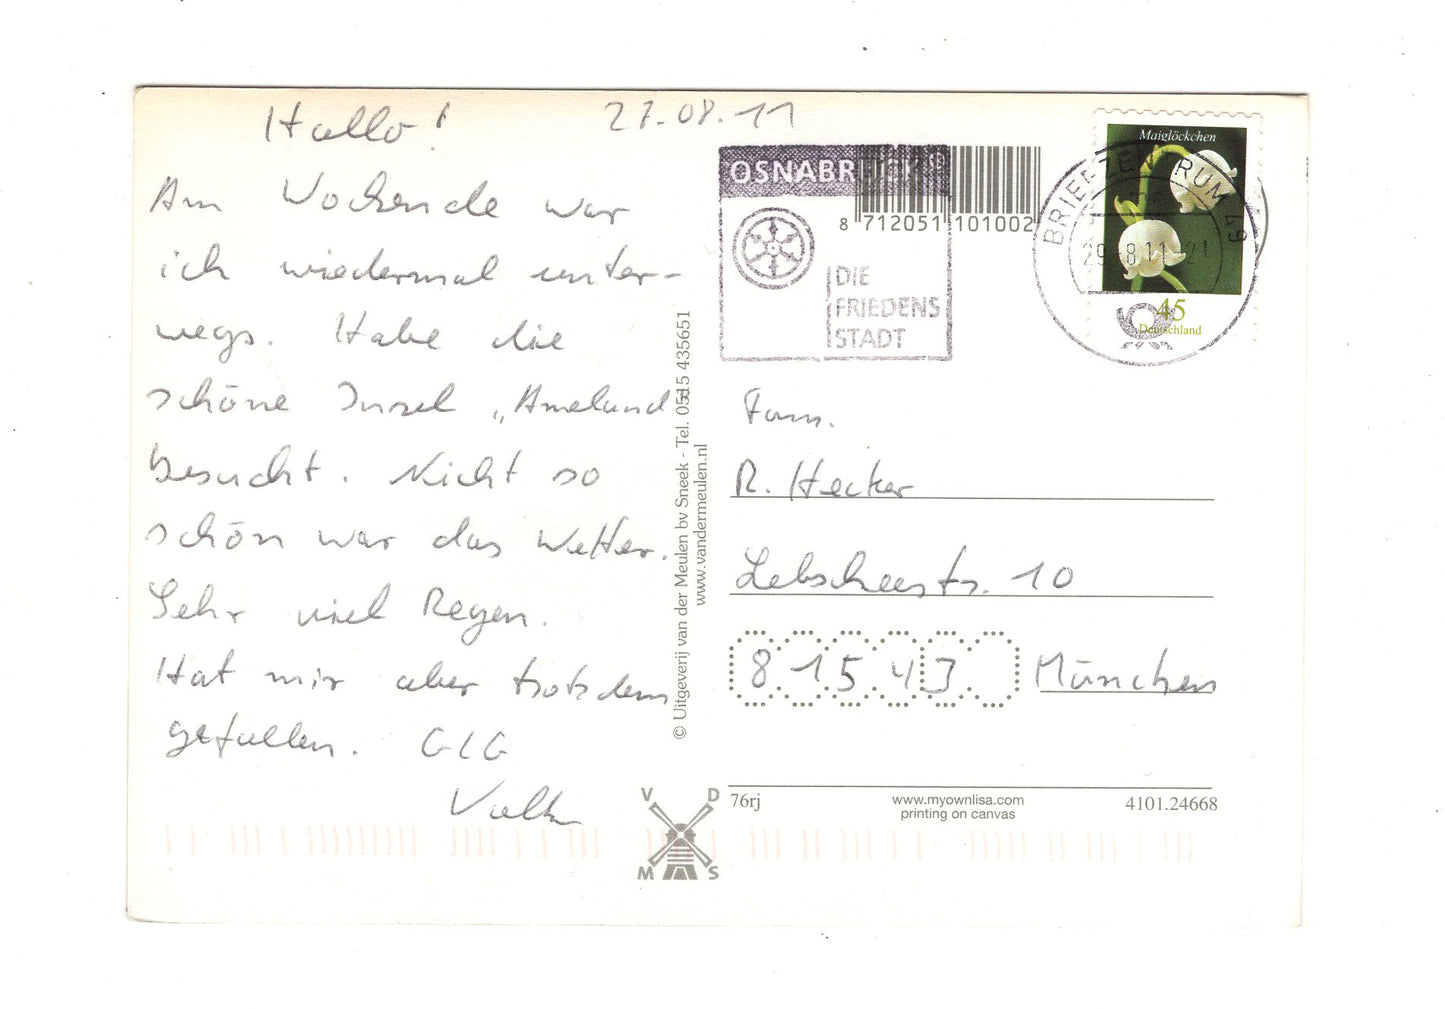 Hallo! 27.08.11
Am Wochende war
ich wiedermal unter-
wegs. Habe die
schöne Insel „Ameland
besucht. Nicht so
schön war das Wetter.
Sehr viel Regen.
Hat mir aber trotzdem
gefallen. GLG
© Uitgeverij van der Meulen bv Sneek - Tel. 0515 435651
www.vandermeulen.nl
V D
M S
OSNABRÜCK®
DIE
FRIEDENS
STADT
8 712051 101002
BRIEFZENTRUM 49
29.-8.11-21
Maiglöckchen
45
Deutschland
Fam.
R. Hecker
10
81543 München
76rj
www.myownlisa.com
printing on canvas
4101.24668